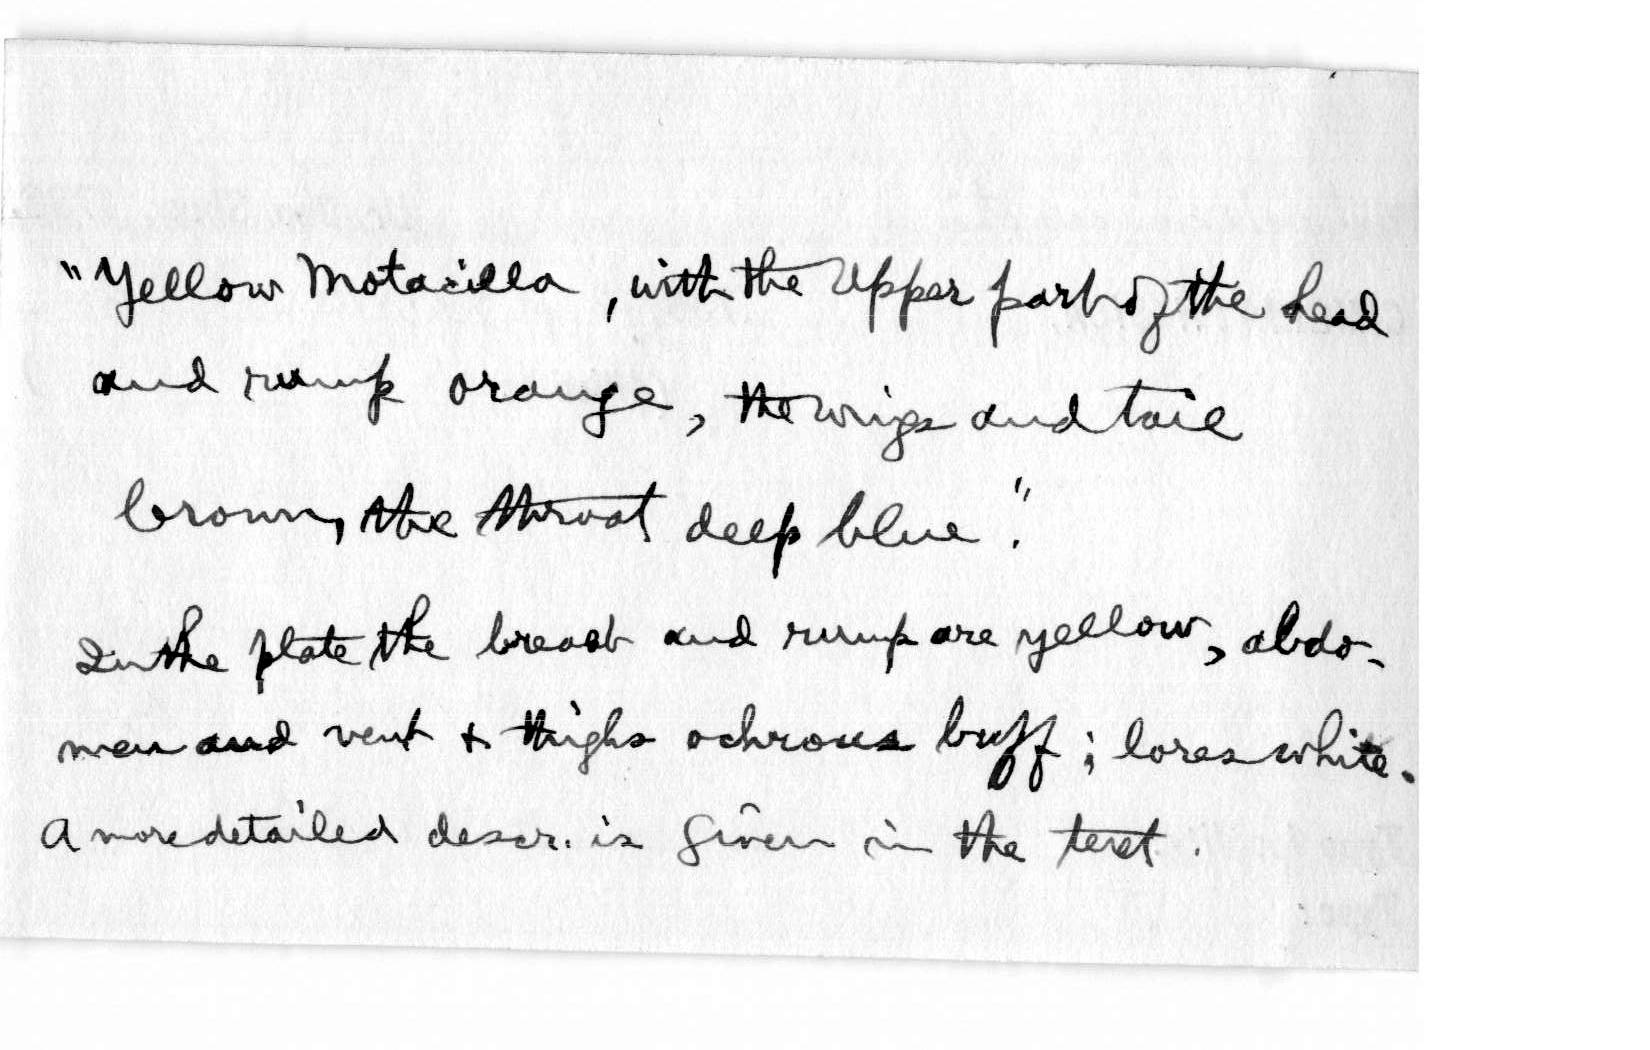 "Yellow Motacilla, with the upper part of the head
and rump orange, the wings and tail
brown, the throat deep blue."
In the plate the breast and rump are yellow, abdo-
men and vent + thighs ochrous buff; lores white.
A more detailed descr. is given in the text.